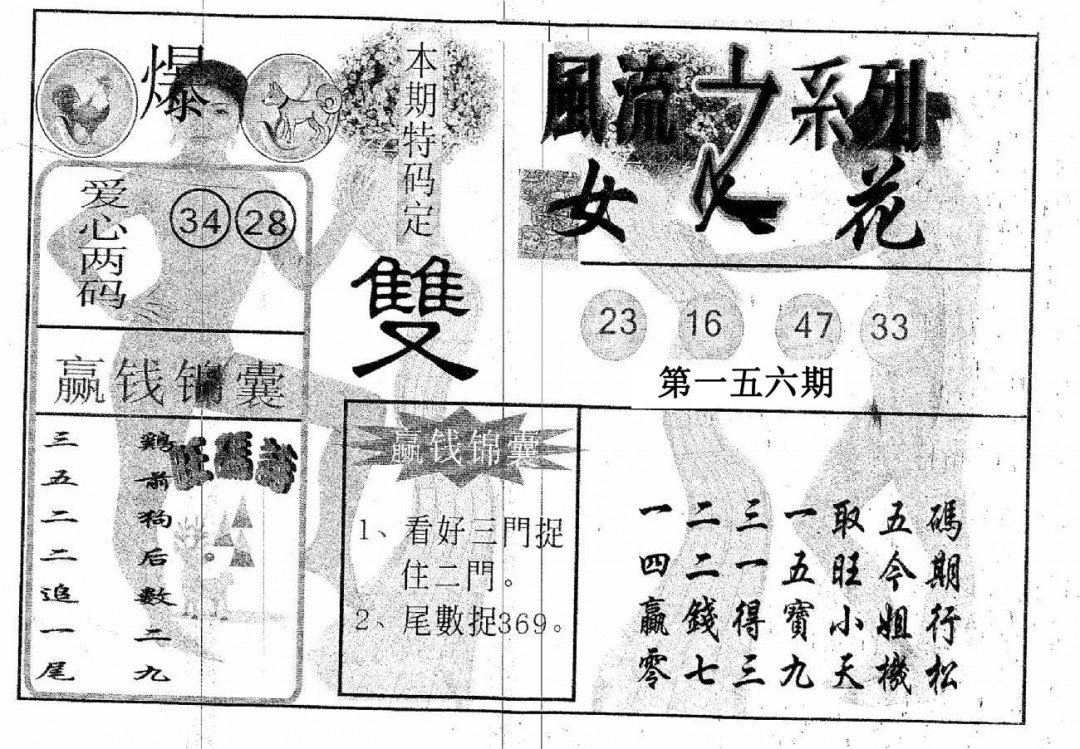 爆
本期特码定
雙
爱心两码
34 28
赢钱锦囊
鷄前狗后數二九
三五二二追一尾
赢钱锦囊
1、看好三門捉
住二門。
2、尾數捉369。
風流之系列
女人花
23 16 47 33
第一五六期
一二三一取五碼
四二一五旺今期
贏錢得寶小姐行
零七三九天機松